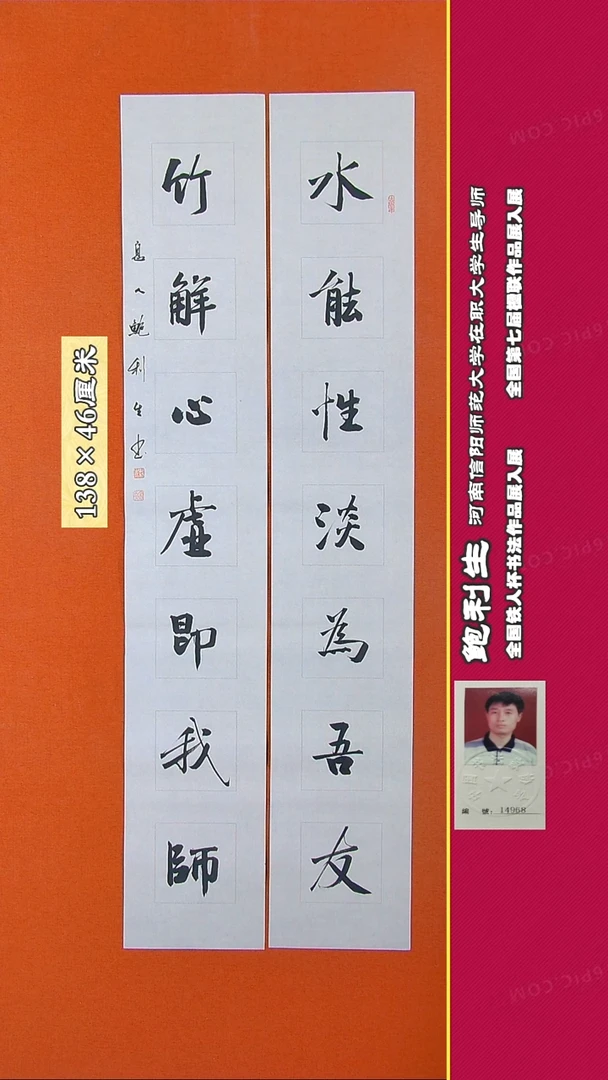 水能性淡為吾友
竹解心虛即我師
鲍利生书
138×46厘米
鲍利生 河南信阳师范大学在职大学生导师
全国铁人杯书法作品展入展 全国第七届楹联作品展入展
編號：14968